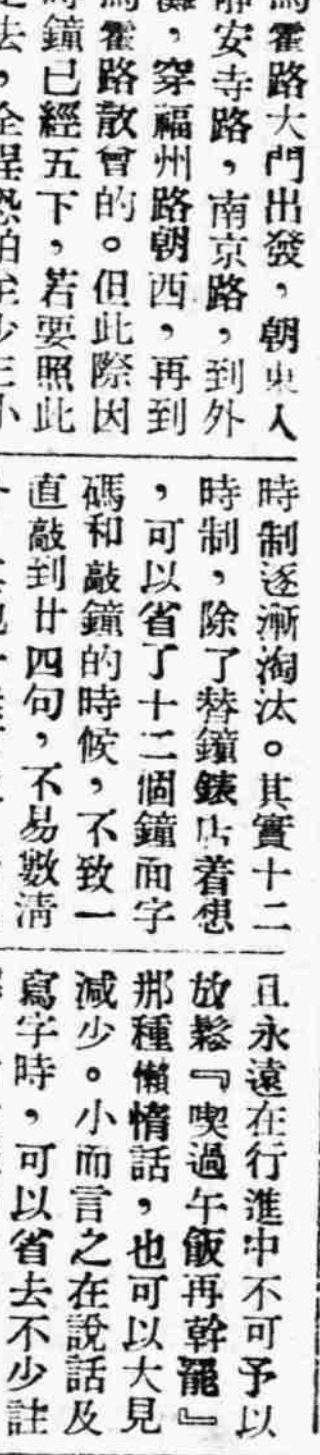 馬霍路大門出發，朝東入
靜安寺路，南京路，到外
灘，穿福州路朝西，再到
馬霍路散會的。但此際因
時鐘已經五下，若要照此
去，全程恐怕至少三小
時制逐漸淘汰。其實十二
時制，除了替鐘錶店着想
，可以省了十二個鐘面字
碼和敲鐘的時候，不致一
直敲到廿四句，不易數清
且永遠在行進中不可予以
放鬆『喫過午飯再幹罷』
那種懶惰話，也可以大見
減少。小而言之在說話及
寫字時，可以省去不少註